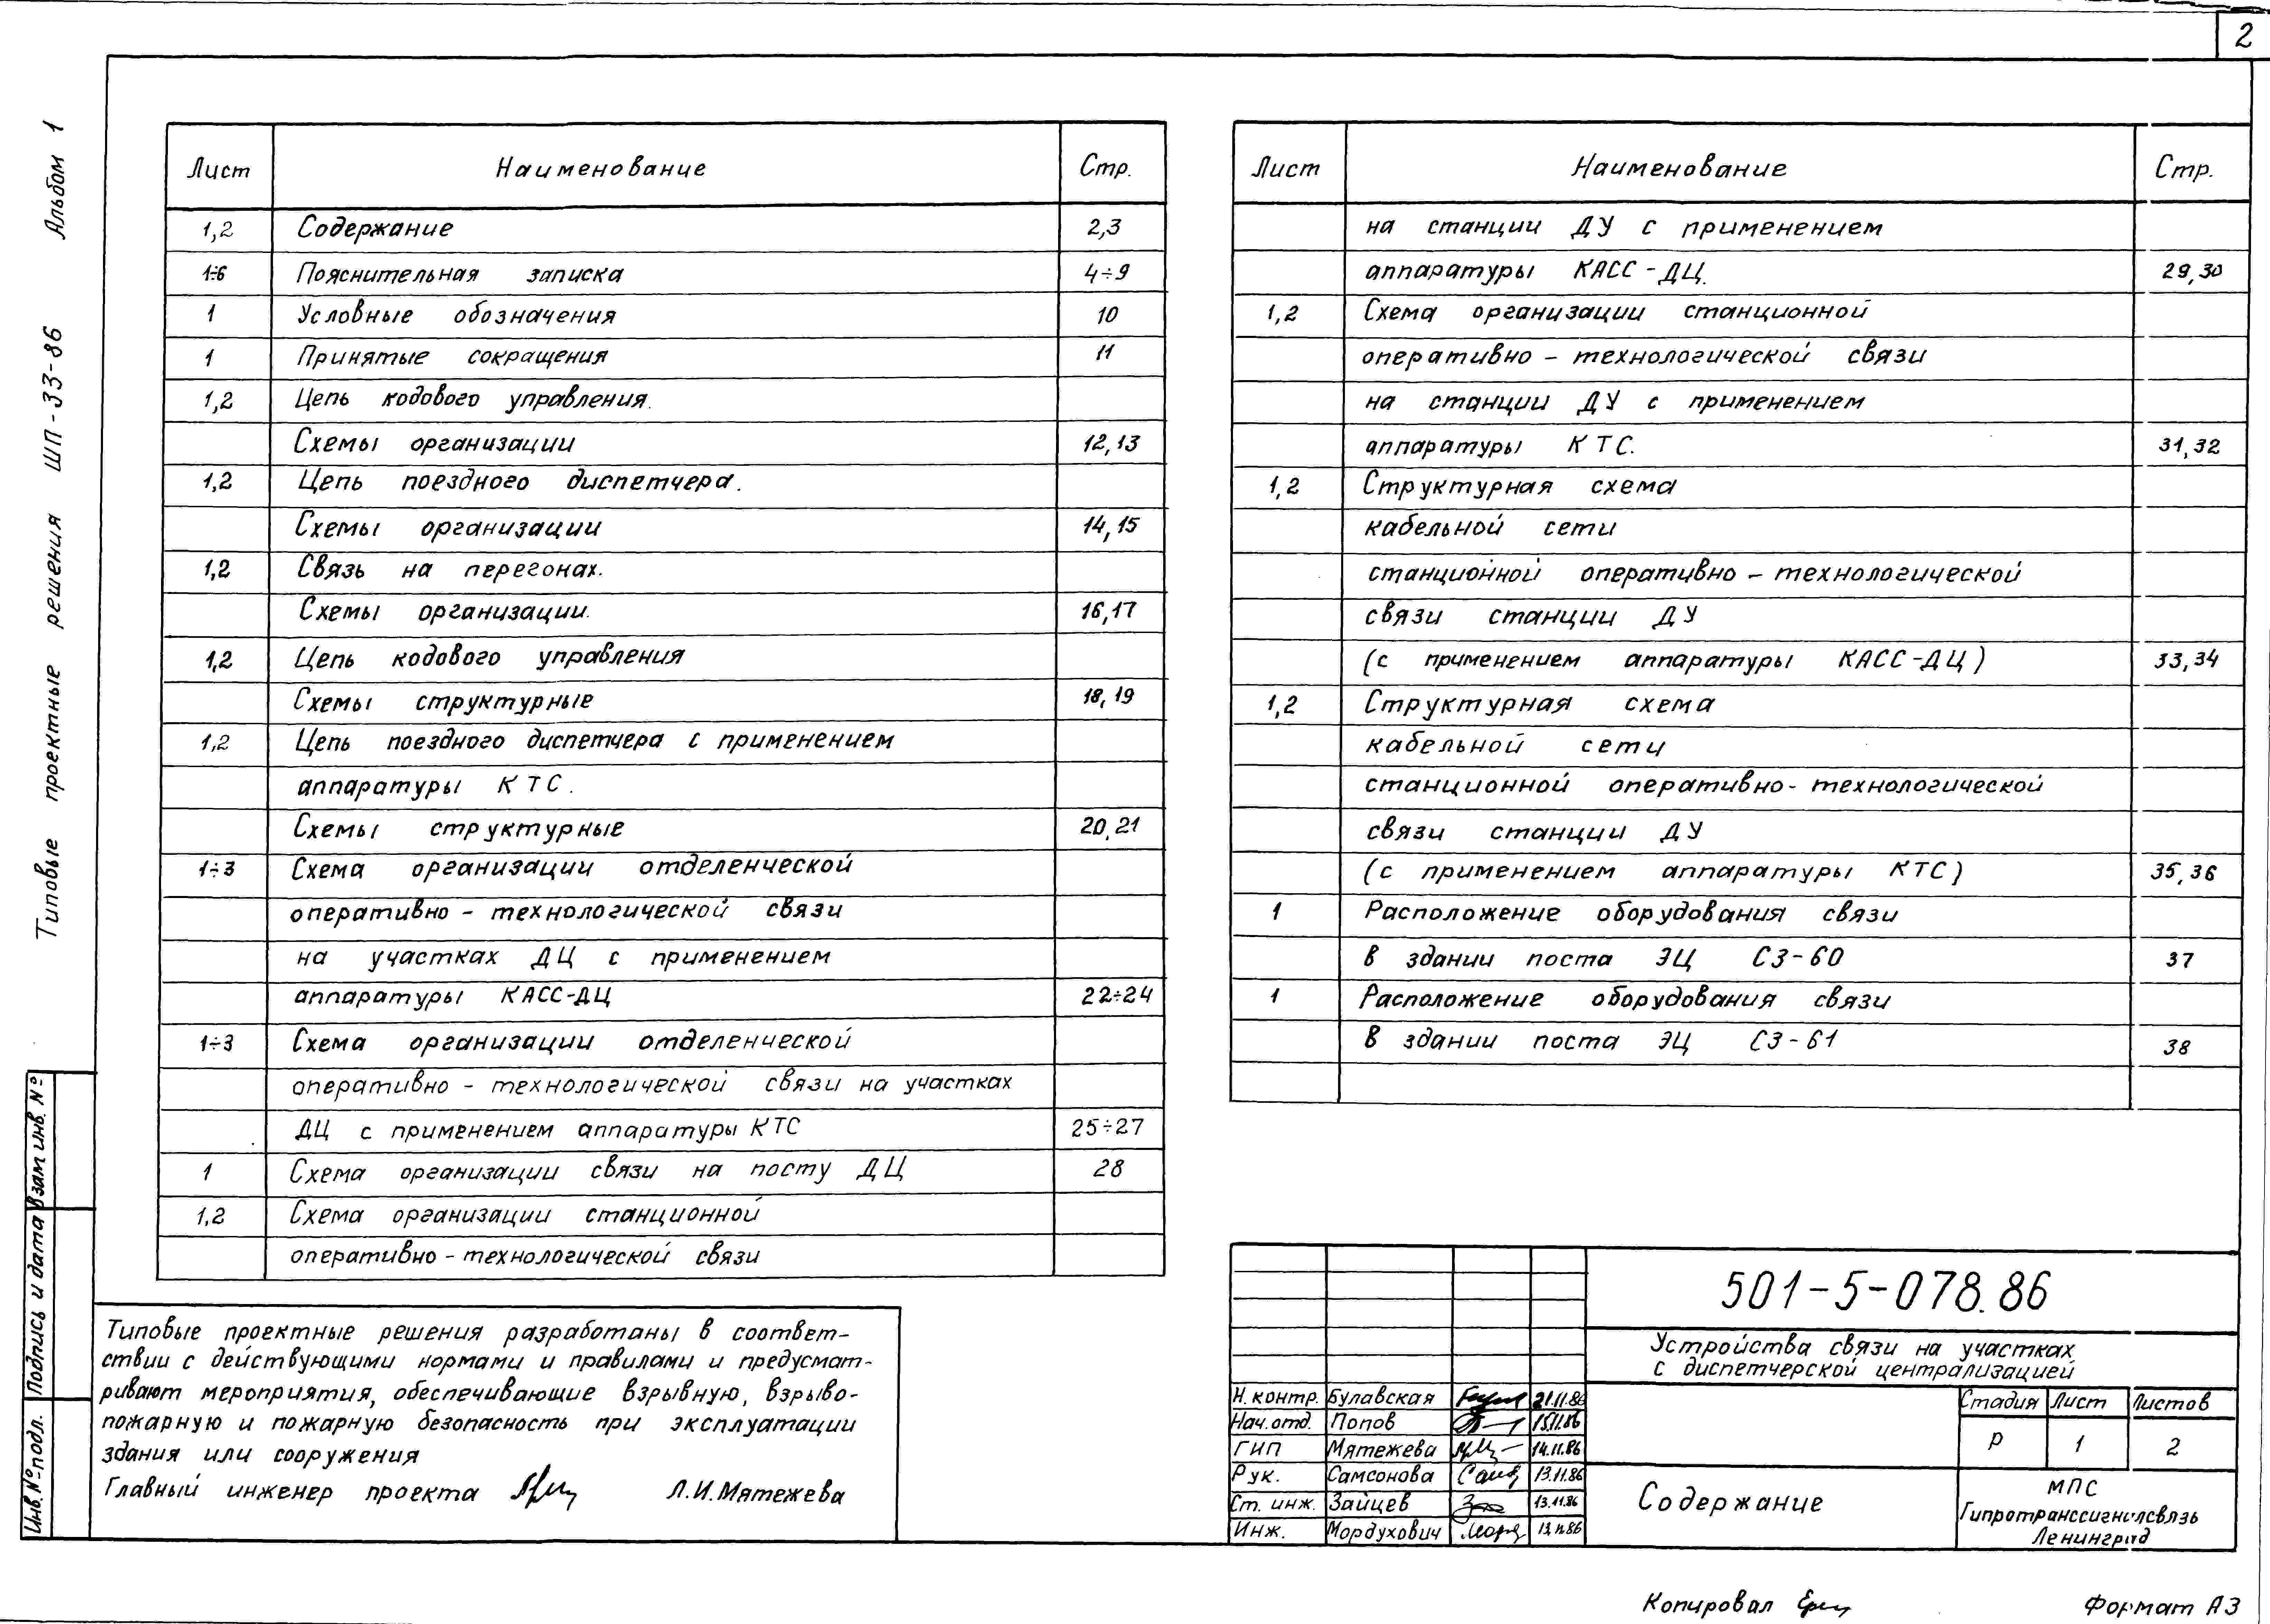 2
Типовые проектные решения ШП-33-86 Альбом 1
Лист Наименование Стр.
1,2 Содержание 2,3
1÷6 Пояснительная записка 4÷9
1 Условные обозначения 10
1 Принятые сокращения 11
1,2 Цепь кодового управления.
Схемы организации 12,13
1,2 Цепь поездного диспетчера.
Схемы организации 14,15
1,2 Связь на перегонах.
Схемы организации. 16,17
1,2 Цепь кодового управления
Схемы структурные 18,19
1,2 Цепь поездного диспетчера с применением
аппаратуры КТС.
Схемы структурные 20,21
1÷3 Схема организации отделенческой
оперативно-технологической связи
на участках ДЦ с применением
аппаратуры КАСС-ДЦ 22÷24
1÷3 Схема организации отделенческой
оперативно-технологической связи на участках
ДЦ с применением аппаратуры КТС 25÷27
1 Схема организации связи на посту ДЦ 28
1,2 Схема организации станционной
оперативно-технологической связи
Лист Наименование Стр.
на станции ДУ с применением
аппаратуры КАСС-ДЦ. 29,30
1,2 Схема организации станционной
оперативно-технологической связи
на станции ДУ с применением
аппаратуры КТС. 31,32
1,2 Структурная схема
кабельной сети
станционной оперативно-технологической
связи станции ДУ
(с применением аппаратуры КАСС-ДЦ) 33,34
1,2 Структурная схема
кабельной сети
станционной оперативно-технологической
связи станции ДУ
(с применением аппаратуры КТС) 35,36
1 Расположение оборудования связи
в здании поста ЭЦ СЗ-60 37
1 Расположение оборудования связи
в здании поста ЭЦ СЗ-61 38
Типовые проектные решения разработаны в соответ-
ствии с действующими нормами и правилами и предусмат-
ривают мероприятия, обеспечивающие взрывную, взрыво-
пожарную и пожарную безопасность при эксплуатации
здания или сооружения
Главный инженер проекта Л.И.Мятежева
Инв.№подл. Подпись и дата Взам инв.№
501-5-078.86
Устройства связи на участках
с диспетчерской централизацией
Н.контр. Булавская 21.11.86
Нач.отд. Попов 15.11.86
ГИП Мятежева 14.11.86
Рук. Самсонова 13.11.86
Ст. инж. Зайцев 13.11.86
Инж. Мордухович 13.11.86
Стадия Лист Листов
Р 1 2
Содержание
МПС
Гипротранссигналсвязь
Ленинград
Копировал
Формат А3